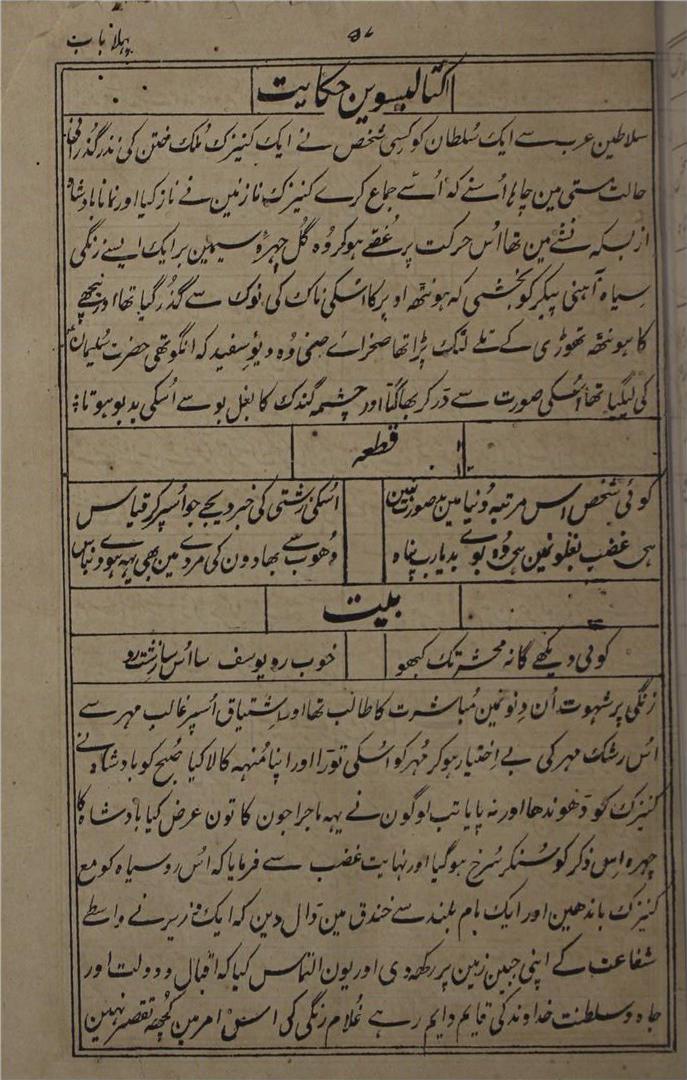 پہلا باب
۵۷
اکتالیسوین حکایت
سلاطین عرب سے ایک سُلطان کو کسی شخص نے ایک کنیزک مُلک ختن کی نذر گذرانی
حالت مستی مین چاہا اُسنے کہ اُسّے جماع کرے کنیزک نازنین نے ناز کیا اور نمانا بادشاہ
ازبسکہ نشے مین تھا اُس حرکت پر غُصّے ہو کر وُہ گُل چہرۂ سیمین بر ایک ایسے زنگی
سیاہ آہنی پیکر کو بخشی کہ ہونٹھ اوپر کا اُسکی ناک کی نوک سے گذر گیا تھا اور نیچے
کا ہونٹھ تھوڑی کے تلے لٹک پڑا تھا صخرائے جنی وُہ دیو سفید کہ انگوٹھی حضرت سُلیمان
کی لیگیا تھا اُسکی صورت سے ڈر کر بھاگتا اور چشمہ گندک کا بغل بو سے اُسکی بدبو ہوتا
قطعہ
کوئی شخص اس مرتبہ دُنیا مین بد صورت نہین
اُسکی زشتی کی خبر دیجے جو اُسپر کر قیاس
ہی غضب بغلونمین ہی وُہ بوے بد یارب پناہ
دُھوپ سے بھادون کی مردے مین بھی یہہ ہوو نباس
بیت
کوئی دیکھے گا نہ محشر تک کبھو
خوب رو یوسف سا اُس سا زشت رو
زنگی پر شہوت اُن دنونمین مُباشرت کا طالب تھا اور اشتیاق اُسپر غالب مہر سے
اُس رشک مہر کی بے اختیار ہو کر مُہر کو اُسکی توڑا اور اپنا مُنہہ کالا کیا صُبح کو بادشاہ نے
کنیزک کو ڈھوندھا اور نہ پایا تب لوگون نے یہہ ماجرا جون کا تون عرض کیا بادشاہ کا
چہرہ اس ذکر کو سُنکر سُرخ ہو گیا اور نہایت غضب سے فرمایا کہ اُس رو سیاہ کو مع
کنیزک باندھین اور ایک بام بلند سے خندق مین ڈال دین کہ ایک وزیر نے واسطے
شفاعت کے اپنی جبین زمین پر رکھہ دی اور یون التماس کیا کہ اقبال و دولت اور
جاہ و سلطنت خداوند کی قایم دایم رہے غُلام زنگی کی اس امر مین کُچھہ تقصیر نہین